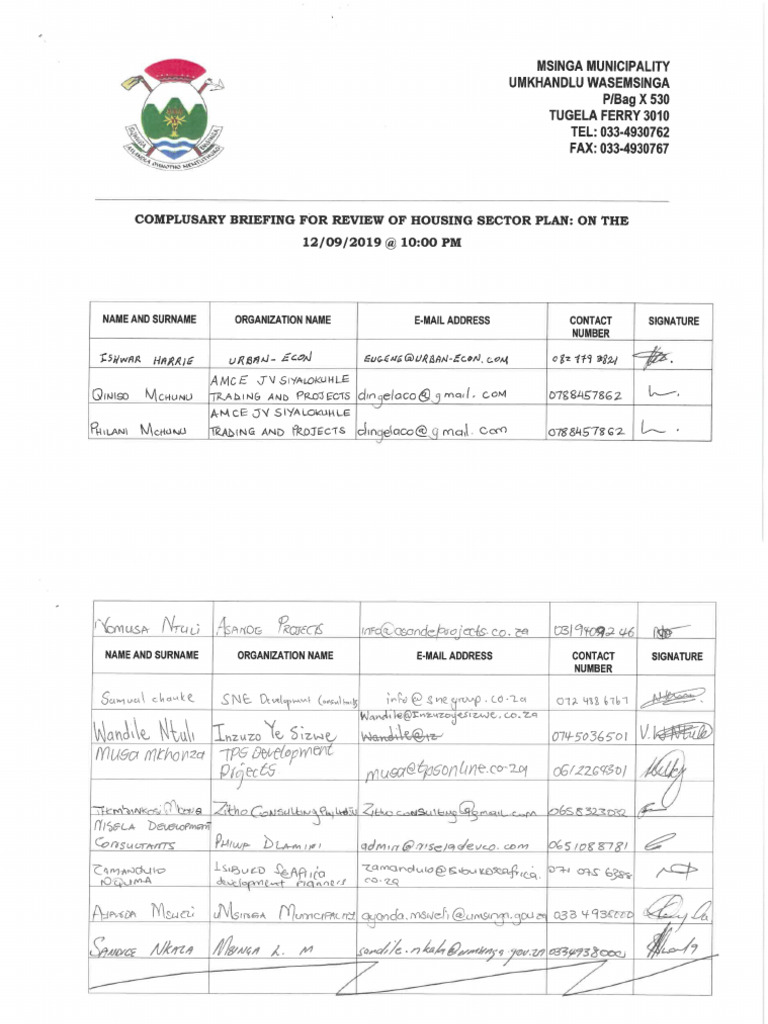 MSINGA MUNICIPALITY
UMKHANDLU WASEMSINGA
P/Bag X 530
TUGELA FERRY 3010
TEL: 033-4930762
FAX: 033-4930767
COMPLUSARY BRIEFING FOR REVIEW OF HOUSING SECTOR PLAN: ON THE
12/09/2019 @ 10:00 PM
NAME AND SURNAME ORGANIZATION NAME E-MAIL ADDRESS CONTACT NUMBER SIGNATURE
ISHWAR HARRIE URBAN-ECON EUGENE@URBAN-ECON.COM 082 779 3821
QINISO MCHUNU AMCE JV SIYALOKUHLE TRADING AND PROJECTS dingelaco@gmail.com 0788457862
PHILANI MCHUNU AMCE JV SIYALOKUHLE TRADING AND PROJECTS dingelaco@gmail.com 0788457862
NOMUSA NTULI ASANDE PROJECTS info@asandeprojects.co.za 0319409246
NAME AND SURNAME ORGANIZATION NAME E-MAIL ADDRESS CONTACT NUMBER SIGNATURE
Samual chauke SNE Development Consultants info@snegroup.co.za 072 438 6767
Wandile Ntuli Inzuzo Ye Sizwe Wandile@Inzuzoyesizwe.co.za 0745036501
Musa Mkhonza TPS Development Projects musa@tpsonline.co.za 0612264301
Zitho Consulting Zithoconsulting@gmail.com 0658323032
NISELA DEVELOPMENT CONSULTANTS PHIWA DLAMINI admin@niseladevco.com 0651088781
ZAMANDULO NQUMA development planners 071 075 6388
AYANDA MSWELI UMSINGA MUNICIPALITY ayanda.msweli@umsinga.gov.za 033 4938000
SANDILE NKALA MSINGA L. M sandile.nkala@umsinga.gov.za 0334938000